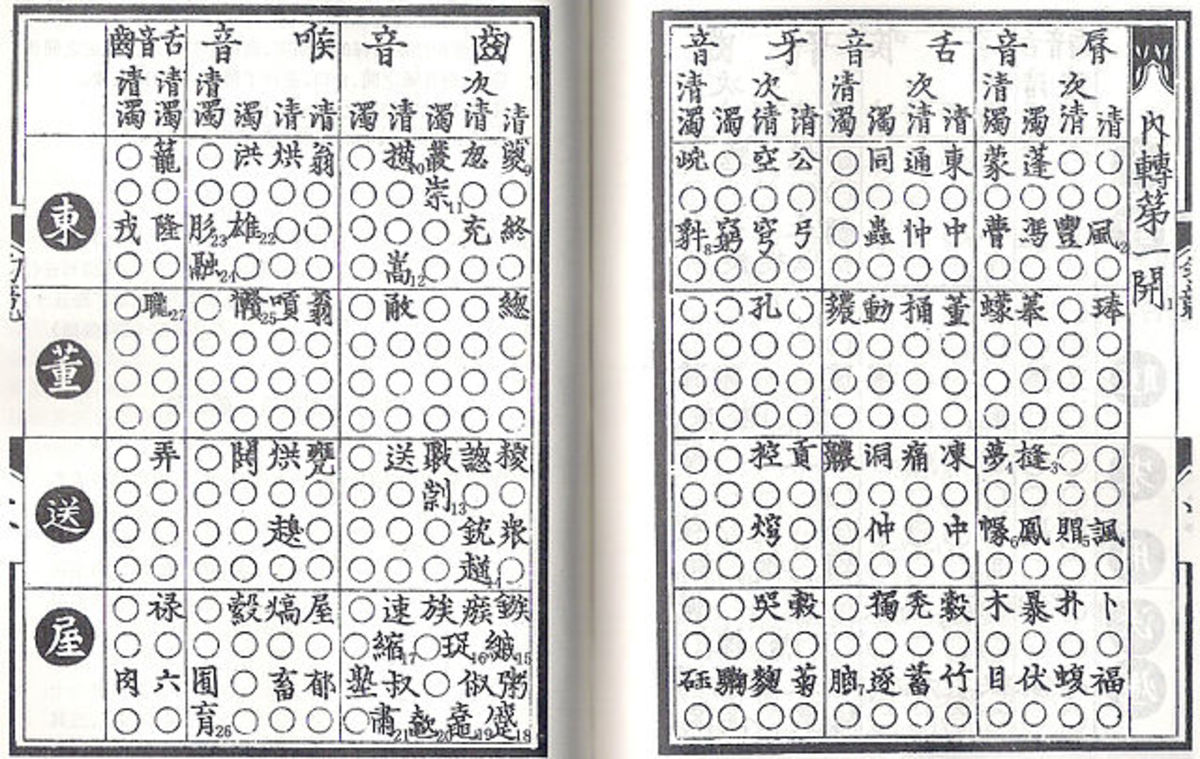 內轉第一開1
脣音 舌音 牙音
清 次清 濁 清濁 清 次清 濁 清濁 清 次清 濁 清濁
○ ○ 蓬 蒙 東 通 同 ○ 公 空 ○
○ ○ ○ ○ ○ ○ ○ ○ ○ ○ ○ ○
風2 豐 馮 瞢 中 忡 蟲 ○ 弓 穹 窮
○ ○ ○ ○ ○ ○ ○ ○ ○ ○ ○ ○
琫 ○ 菶 蠓 董 桶 動 繷 ○ 孔 ○ ○
○ ○ ○ ○ ○ ○ ○ ○ ○ ○ ○ ○
○ ○ ○ ○ ○ ○ ○ ○ ○ ○ ○ ○
○ ○ ○ ○ ○ ○ ○ ○ ○ ○ ○ ○
○ ○ 夢4 凍 痛 洞 齈 貢 控 ○ ○
○ ○ ○ ○ ○ ○ ○ ○ ○ ○ ○ ○
諷 賵5 鳳 幪6 中 ○ 仲 ○ ○ 焪 ○ ○
○ ○ ○ ○ ○ ○ ○ ○ ○ ○ ○ ○
卜 扑 暴 木 禿 獨 ○ 穀 哭 ○ ○
○ ○ ○ ○ ○ ○ ○ ○ ○ ○ ○ ○
福 蝮 伏 目 竹 蓄 逐 菊 麴 駶 砡
○ ○ ○ ○ ○ ○ ○ ○ ○ ○ ○ ○
齒音 喉音 舌音齒
清 次清 濁 清 濁 清 清 濁 清濁 清濁 清濁
東
怱 叢 ○ 翁 烘 洪 ○ 籠 ○
○ ○ 崇11 ○ ○ ○ ○ ○ ○ ○ ○
終 充 ○ ○ ○ ○ ○ 雄22 肜23 隆 戎
○ ○ ○ 嵩12 ○ ○ ○ ○ 融24 ○ ○
董
緫 ○ ○ ○ 蓊 嗊 ○ 曨27 ○
○ ○ ○ ○ ○ ○ ○ ○ ○ ○ ○
○ ○ ○ ○ ○ ○ ○ ○ ○ ○ ○
○ ○ ○ ○ ○ ○ ○ ○ ○ ○ ○
送
謥 送 ○ 甕 烘 閧 ○ 弄 ○
○ ○ ○ ○ ○ ○ ○ ○ ○ ○
衆 銃 ○ ○ ○ ○ ○ ○ ○ ○
○ ○ ○ ○ ○ ○ ○ ○ ○ ○
屋
鏃 瘯 族 速 ○ 屋 熇 縠 ○ 禄 ○
縬15 珿16 ○ 縮17 ○ ○ ○ ○ ○ ○ ○
粥 俶 ○ 叔 塾 郁 畜 ○ 囿 六 肉
肅21 ○ ○ ○ ○ 育26 ○ ○